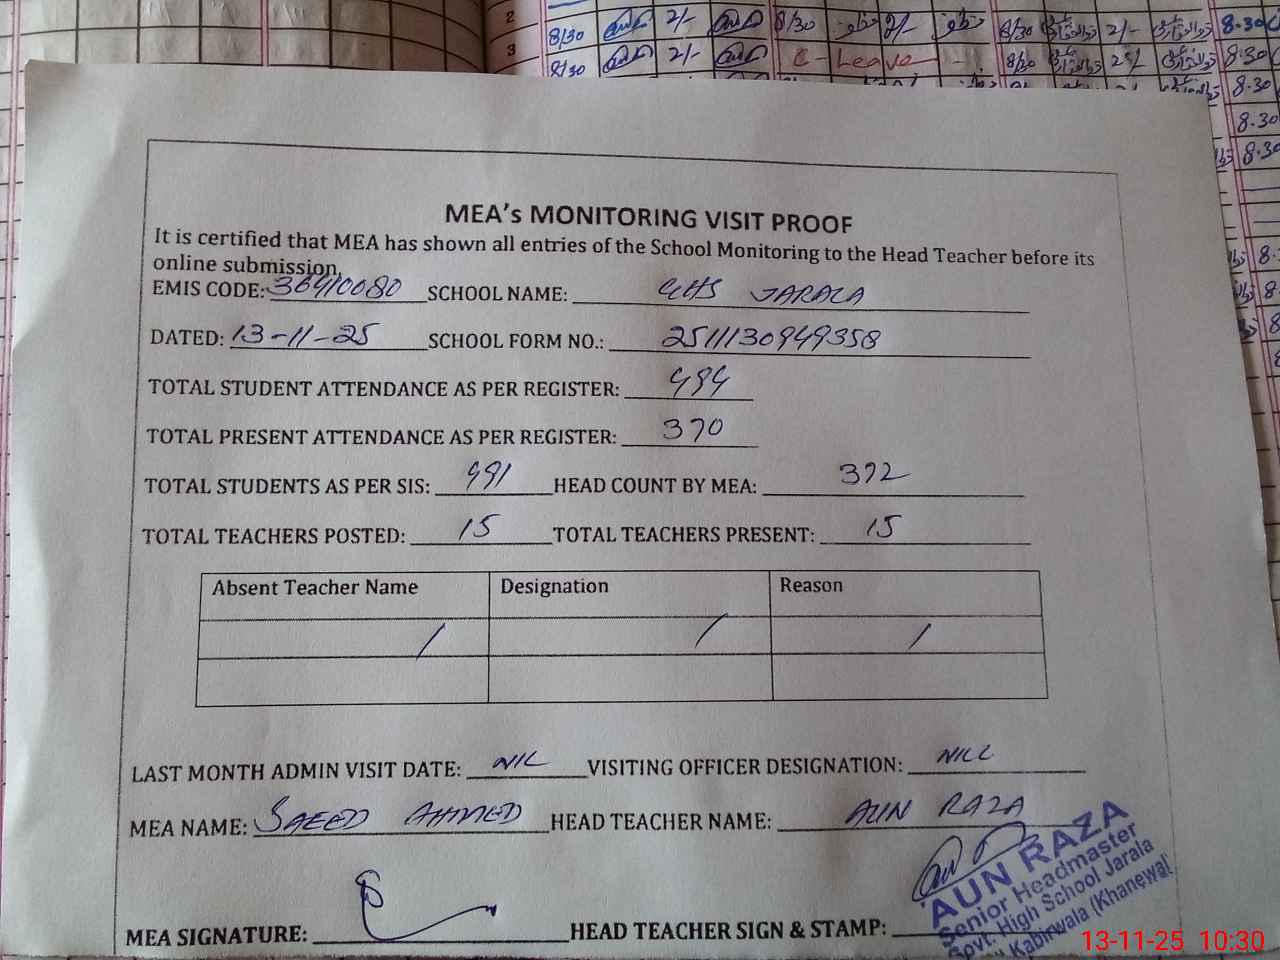 2 8/30 2/- 8/30 2/- 8/30 2/- 8.30
3 8/30 2/- C-Leave 8/30 2/- 8.30
8.30
8.30
8.30
MEA's MONITORING VISIT PROOF
It is certified that MEA has shown all entries of the School Monitoring to the Head Teacher before its
online submission.
EMIS CODE: 36410080 SCHOOL NAME: GHS JARALA
DATED: 13-11-25 SCHOOL FORM NO.: 2511130949358
TOTAL STUDENT ATTENDANCE AS PER REGISTER: 494
TOTAL PRESENT ATTENDANCE AS PER REGISTER: 370
TOTAL STUDENTS AS PER SIS: 491 HEAD COUNT BY MEA: 372
TOTAL TEACHERS POSTED: 15 TOTAL TEACHERS PRESENT: 15
Absent Teacher Name Designation Reason
/ / /
LAST MONTH ADMIN VISIT DATE: NIL VISITING OFFICER DESIGNATION: NILL
MEA NAME: SAEED AHMED HEAD TEACHER NAME: AUN RAZA
MEA SIGNATURE: HEAD TEACHER SIGN & STAMP:
AUN RAZA
Senior Headmaster
Govt. High School Jarala
Kabirwala (Khanewal
13-11-25 10:30